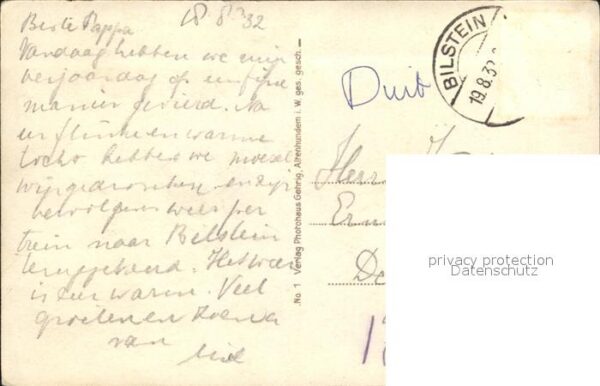 18.8.32
Beste Pappa
Vandaag hebben we mijn
verjaardag op en fijne
manier gevierd. Na
warme
tocht hebben we moesel
wijn gedronken en zijn
per
trein naar Bilstein
teruggekeerd. Het weer
is zeer warm. Veel
groeten en
van
No. 1 Verlag Photohaus Gehrig, Altenhundem i. W. ges. gesch.
BILSTEIN
19.8.32
Duit
Herr
privacy protection
Datenschutz